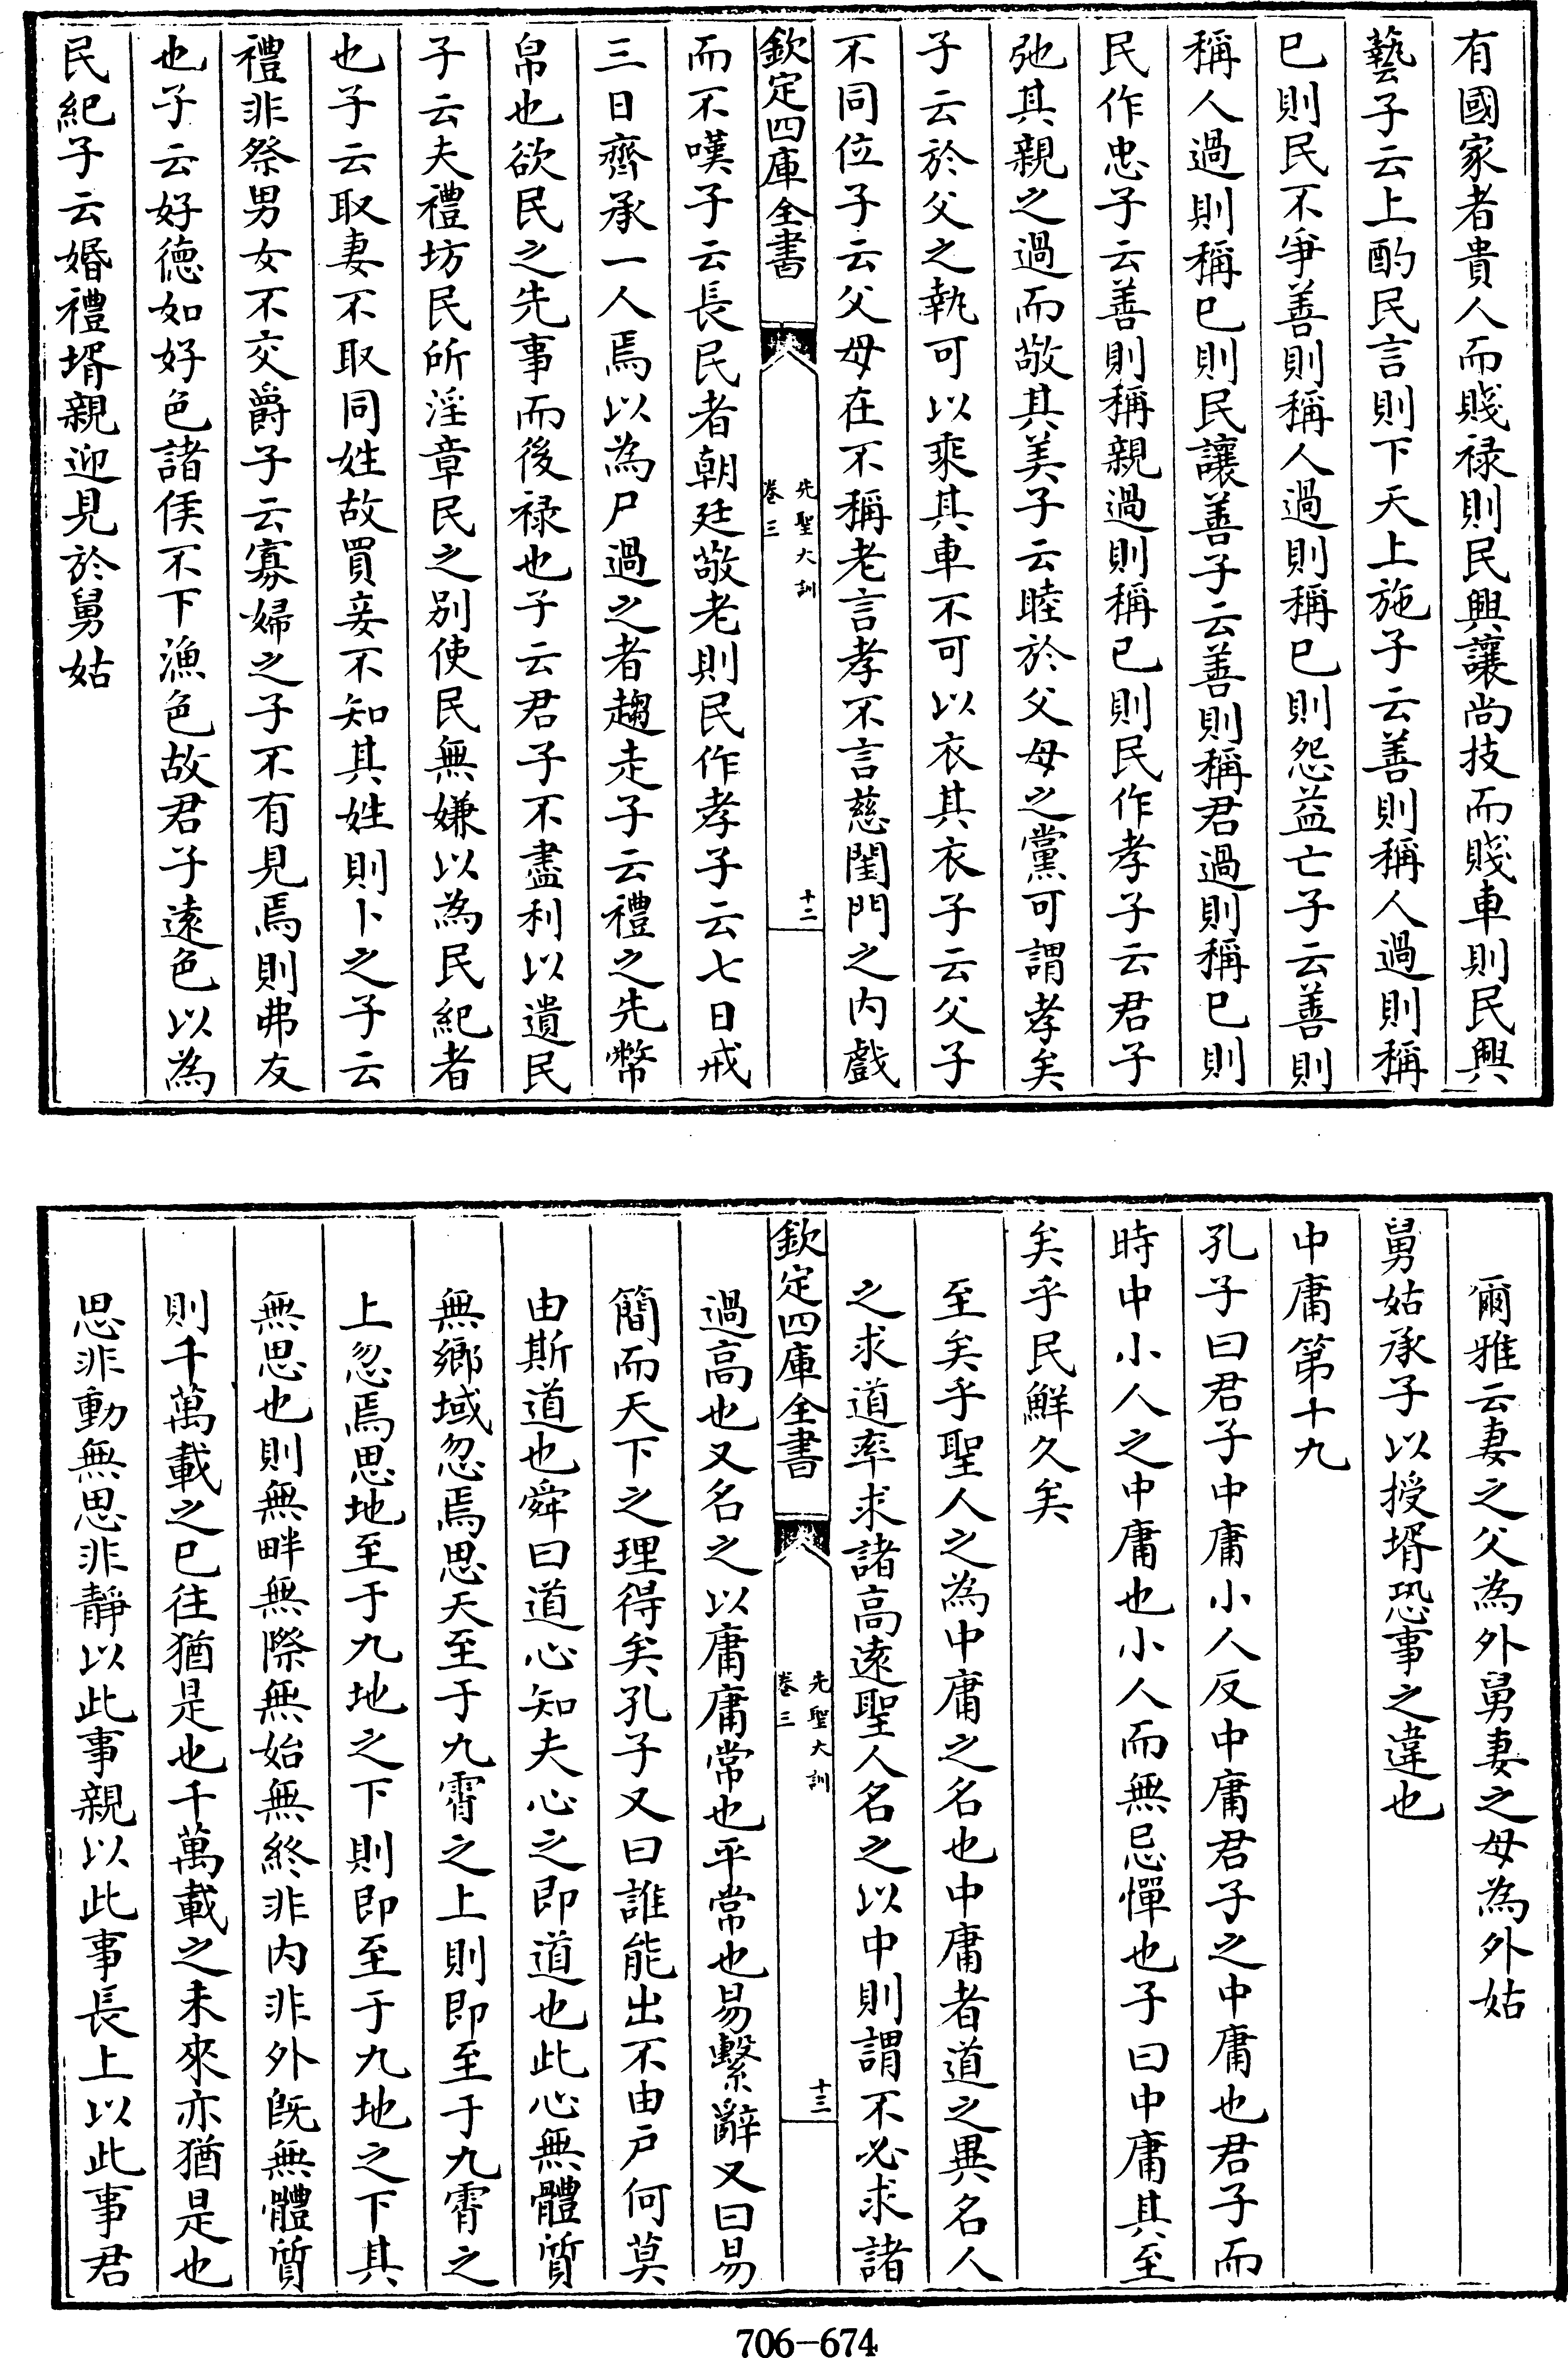 有國家者貴人而賤禄則民興讓尚技而賤車則民興
藝子云上酌民言則下天上施子云善則稱人過則稱
已則民不爭善則稱人過則稱已則怨益亡子云善則
稱人過則稱已則民讓善子云善則稱君過則稱已則
民作忠子云善則稱親過則稱已則民作孝子云君子
弛其親之過而敬其美子云睦於父母之黨可謂孝矣
子云於父之執可以乘其車不可以衣其衣子云父子
不同位子云父母在不稱老言孝不言慈閨門之内戲
欽定四庫全書
先聖大訓
卷三
十二
而不嘆子云長民者朝廷敬老則民作孝子云七日戒
三日齊承一人焉以為尸過之者趨走子云禮之先幣
帛也欲民之先事而後禄也子云君子不盡利以遺民
子云夫禮坊民所淫章民之别使民無嫌以為民紀者
也子云取妻不取同姓故買妾不知其姓則卜之子云
禮非祭男女不交爵子云寡婦之子不有見焉則弗友
也子云好德如好色諸侯不下漁色故君子遠色以為
民紀子云婚禮壻親迎見於舅姑
爾雅云妻之父為外舅妻之母為外姑
舅姑承子以授壻恐事之違也
中庸第十九
孔子曰君子中庸小人反中庸君子之中庸也君子而
時中小人之中庸也小人而無忌憚也子曰中庸其至
矣乎民鮮久矣
至矣乎聖人之為中庸之名也中庸者道之異名人
之求道率求諸高遠聖人名之以中則謂不必求諸
欽定四庫全書
先聖大訓
卷三
十三
過高也又名之以庸庸常也平常也易繫辭又曰易
簡而天下之理得矣孔子又曰誰能出不由户何莫
由斯道也舜曰道心知夫心之即道也此心無體質
無鄉域忽焉思天至于九霄之上則即至于九霄之
上忽焉思地至于九地之下則即至于九地之下其
無思也則無畔無際無始無終非内非外既無體質
則千萬載之已往猶是也千萬載之未來亦猶是也
思非動無思非靜以此事親以此事長上以此事君
706-674